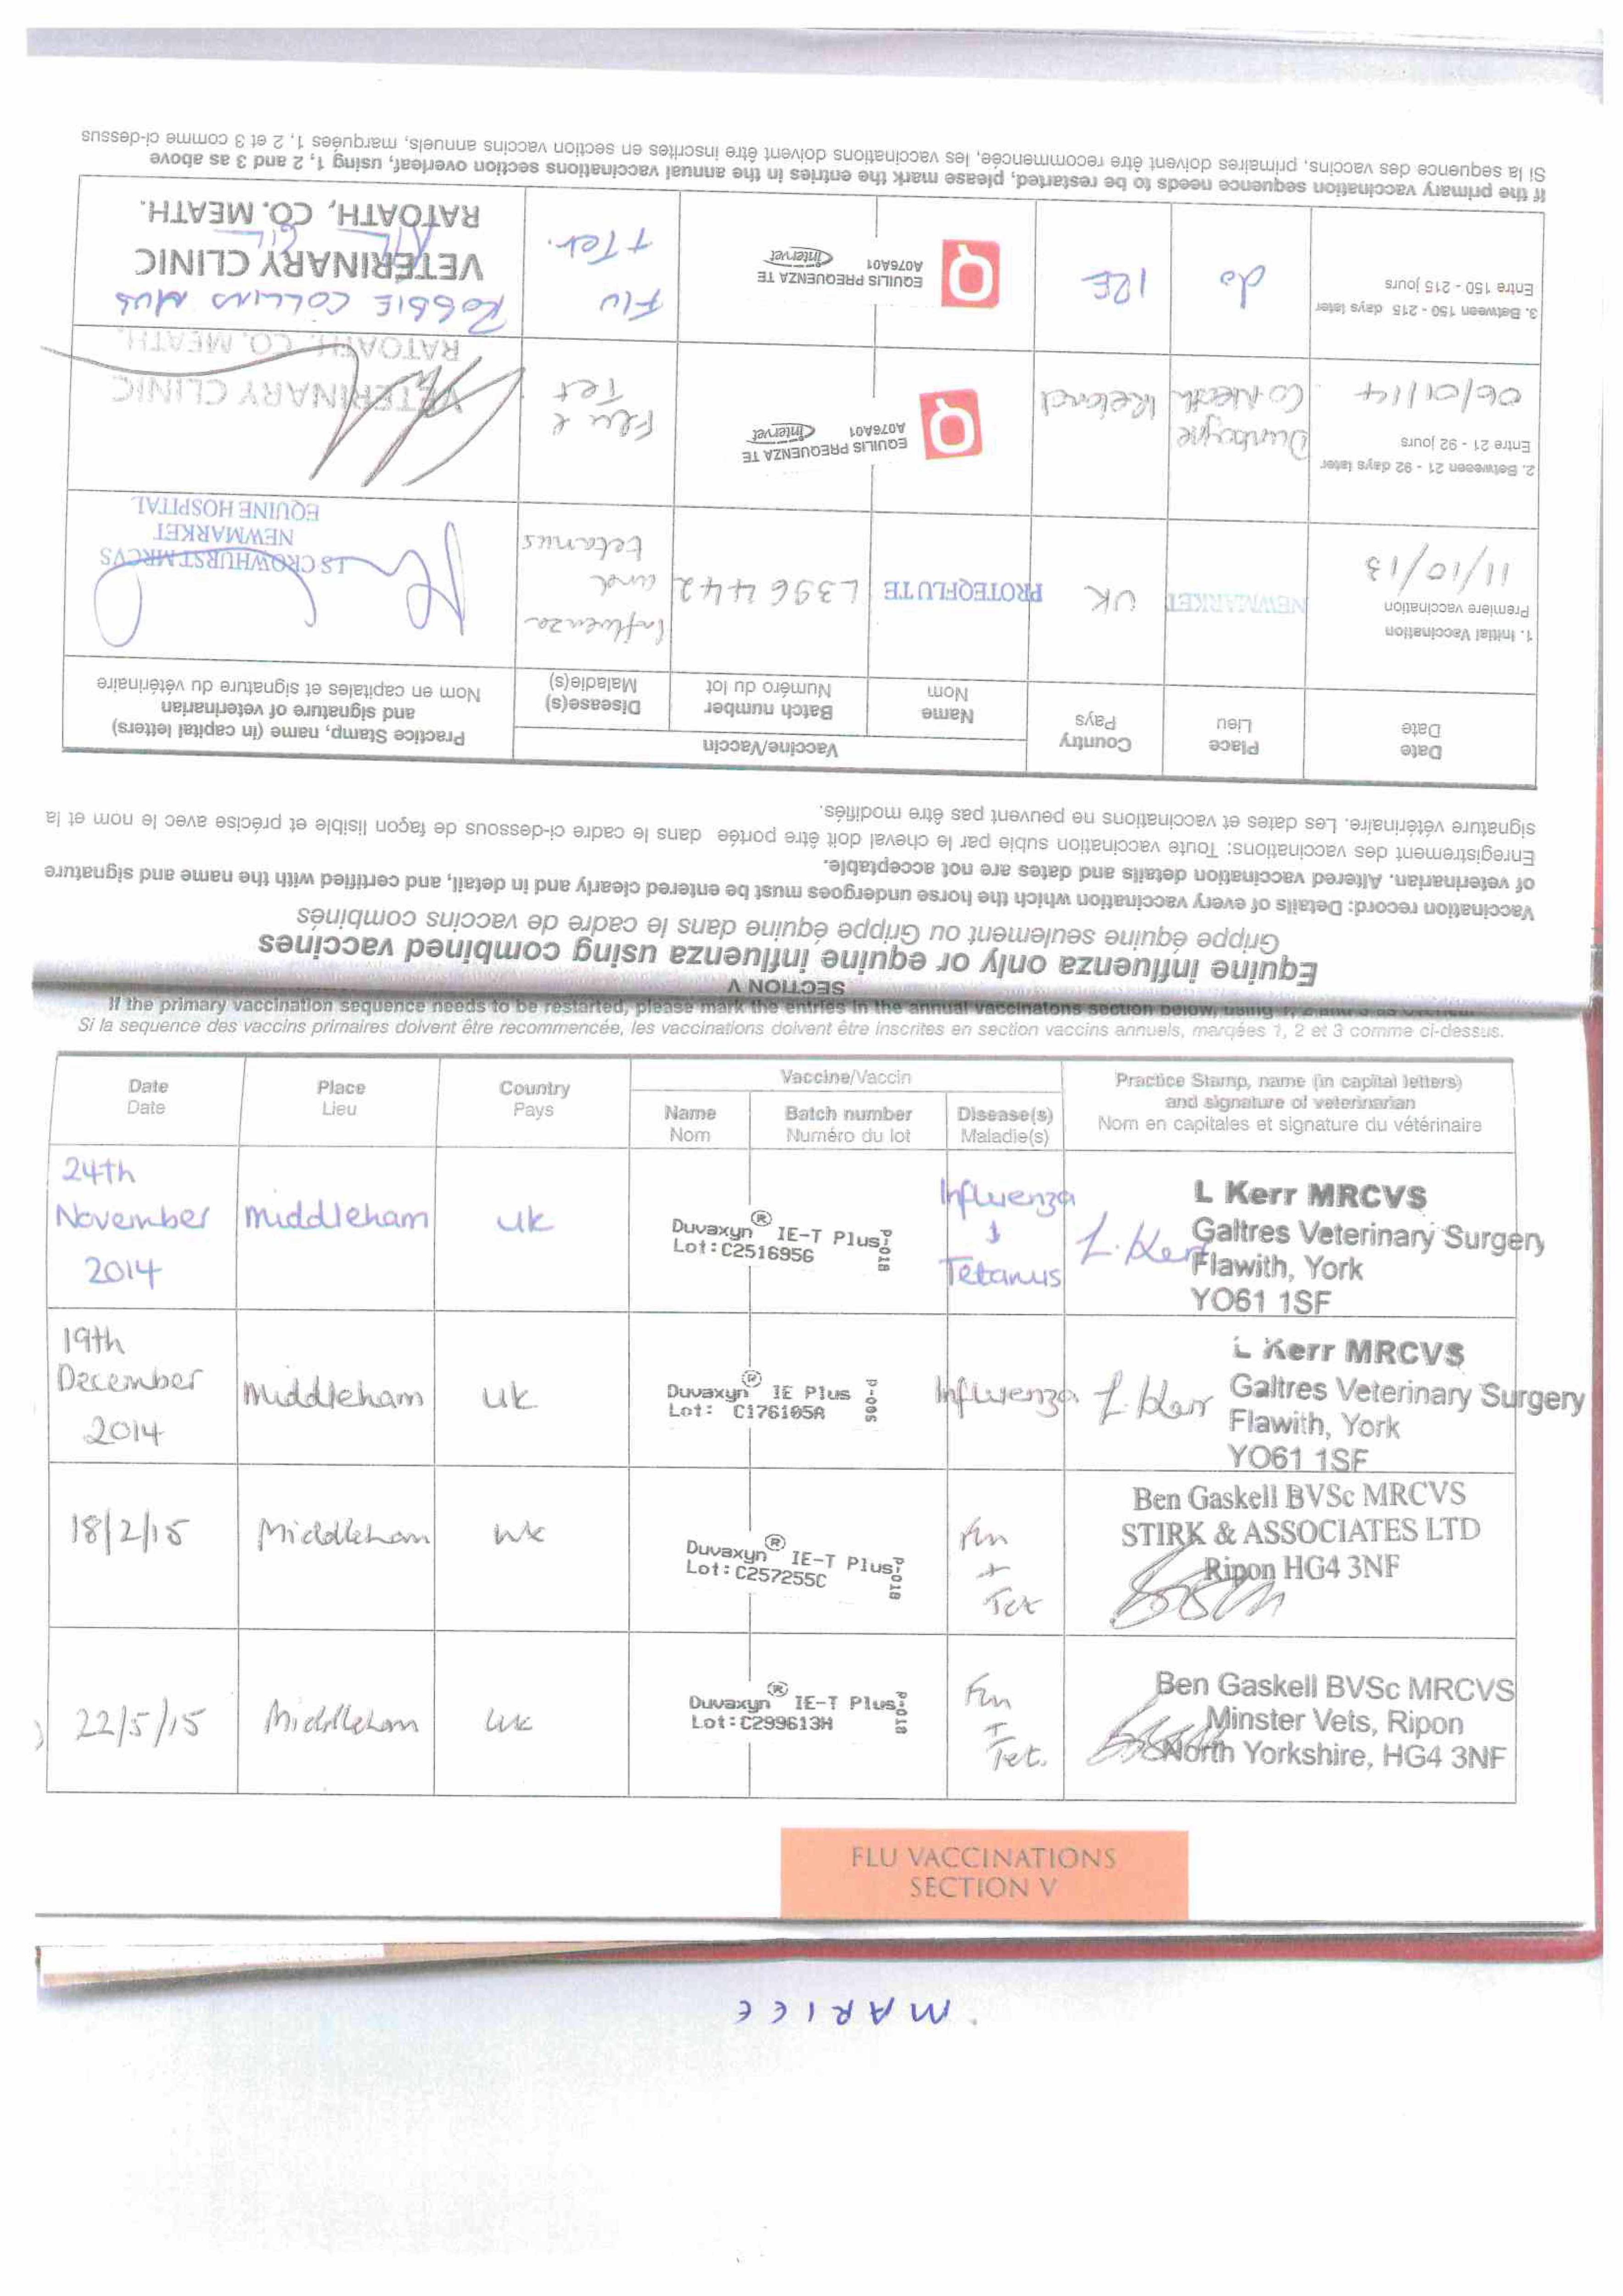 SECTION V
Equine influenza only or equine influenza using combined vaccines
Grippe équine seulement ou Grippe équine dans le cadre de vaccins combinés
Vaccination record: Details of every vaccination which the horse undergoes must be entered clearly and in detail, and certified with the name and signature
of veterinarian. Altered vaccination details and dates are not acceptable.
Enregistrement des vaccinations: Toute vaccination subie par le cheval doit être portée dans le cadre ci-dessous de façon lisible et précise avec le nom et la
signature vétérinaire. Les dates et vaccinations ne peuvent pas être modifiés.
Date
Date
Place
Lieu
Country
Pays
Vaccine/Vaccin
Name
Nom
Batch number
Numéro du lot
Disease(s)
Maladie(s)
Practice Stamp, name (in capital letters)
and signature of veterinarian
Nom en capitales et signature du vétérinaire
1. Initial Vaccination
Premiere vaccination
11/10/13
NEWMARKET
UK
PROTEQFLU TE
L396442
Influenza
and
tetanus
I S CROWHURST MRCVS
NEWMARKET
EQUINE HOSPITAL
2. Betweeen 21 - 92 days later
Entre 21 - 92 jours
06/01/14
Dunboyne
Co Meath
Ireland
EQUILIS PREQUENZA TE
A076A01
Intervet
Flu &
Tet
VETERINARY CLINIC
RATOATH, CO. MEATH.
3. Between 150 - 215 days later
Entre 150 - 215 jours
do
IRE
EQUILIS PREQUENZA TE
A076A01
Intervet
Flu
+ Tet.
ROBBIE COLLINS MVB
VETERINARY CLINIC
RATOATH, CO. MEATH.
If the primary vaccination sequence needs to be restarted, please mark the entries in the annual vaccinations section overleaf, using 1, 2 and 3 as above
Si la sequence des vaccins, primaires doivent être recommencée, les vaccinations doivent être inscrites en section vaccins annuels, marquées 1, 2 et 3 comme ci-dessus
If the primary vaccination sequence needs to be restarted, please mark the entries in the annual vaccinatons section below, using 1, 2 and 3 as
Si la sequence des vaccins primaires doivent être recommencée, les vaccinations doivent être inscrites en section vaccins annuels, marqées 1, 2 et 3 comme ci-dessus.
Date
Date
Place
Lieu
Country
Pays
Vaccine/Vaccin
Name
Nom
Batch number
Numéro du lot
Disease(s)
Maladie(s)
Practice Stamp, name (in capital letters)
and signature of veterinarian
Nom en capitales et signature du vétérinaire
24th
November
2014
Middleham
UK
Duvaxyn® IE-T Plus
Lot: C251695G
P-018
Influenza
+
Tetanus
L. Kerr
L Kerr MRCVS
Galtres Veterinary Surgery
Flawith, York
YO61 1SF
19th
December
2014
Middleham
UK
Duvaxyn® IE Plus
Lot: C176105A
P-005
Influenza
L. Kerr
L Kerr MRCVS
Galtres Veterinary Surgery
Flawith, York
YO61 1SF
18/2/15
Middleham
UK
Duvaxyn® IE-T Plus
Lot: C257255C
P-018
Flu
+
Tet
Ben Gaskell BVSc MRCVS
STIRK & ASSOCIATES LTD
Ripon HG4 3NF
22/5/15
Middleham
UK
Duvaxyn® IE-T Plus
Lot: C299613H
P-018
Flu
+
Tet.
Ben Gaskell BVSc MRCVS
Minster Vets, Ripon
North Yorkshire, HG4 3NF
FLU VACCINATIONS
SECTION V